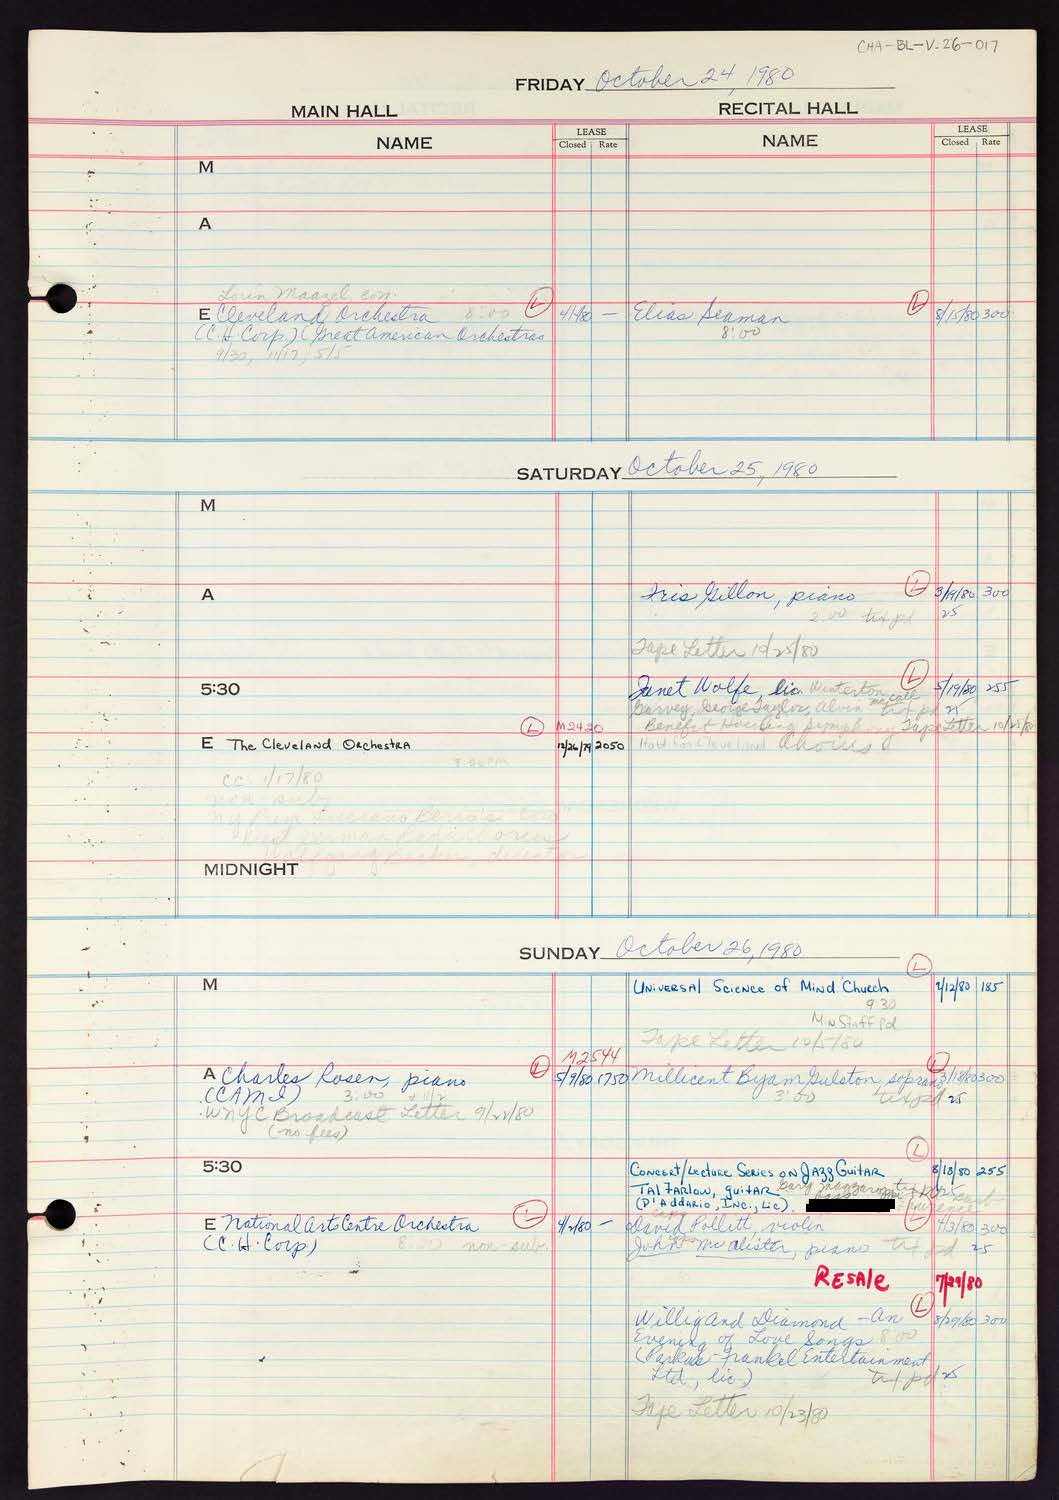 CHA-BL-V-26-017
FRIDAY October 24, 1980
MAIN HALL RECITAL HALL
NAME LEASE Closed Rate NAME LEASE Closed Rate
M
A
Lorin Maazel, con.
E Cleveland Orchestra 8:00 L 4/1/80 — Elias Seaman L 8/15/80 300
(C.H. Corp.) (Great American Orchestras 8:00
9/30, 11/17, 5/5
SATURDAY October 25, 1980
M
A Iris Gillon, piano L 3/19/80 300
2:00 txt pd 25
Tape Letter 10/25/80
5:30 Janet Wolfe, lic. Winterton L 5/19/80 255
Garvey, George Taylor, Alvin McCall txt pd 25
L M2420 Benefit Housing Symphony Tape Letter 10/25/80
E The Cleveland Orchestra 12/26/79 2050 Hold for Cleveland Chorus
8:00 PM
CC 1/17/80
non sub
NY Prem Luciano Berio's
German Radio Chorus
director
MIDNIGHT
SUNDAY October 26, 1980
L
M Universal Science of Mind Church 2/12/80 185
9:30
Mn Staff Pd
Tape Letter 10/5/80
M2544
A Charles Rosen, piano L 5/9/80 1750 Millicent Byam Gulston, soprano L 3/18/80 300
(CAMI) 3:00 3:00 txt pd 25
WNYC Broadcast Letter 9/28/80
(no fees)
L
5:30 Concert/Lecture Series on Jazz Guitar 8/18/80 255
Tal Farlow, guitar Gary
(D'Addario, Inc., Lic).
E National Arts Centre Orchestra L 4/2/80 — David Pollitt, violin L 4/3/80 300
(C.H. Corp) 8:00 non-subs John McAlister, piano txt pd 25
Resale 7/29/80
Willig and Diamond - An L 8/29/80 300
Evening of Love Songs 8:00
(Parkus-Frankel Entertainment
Ltd., lic.) txt pd 25
Tape Letter 10/23/80